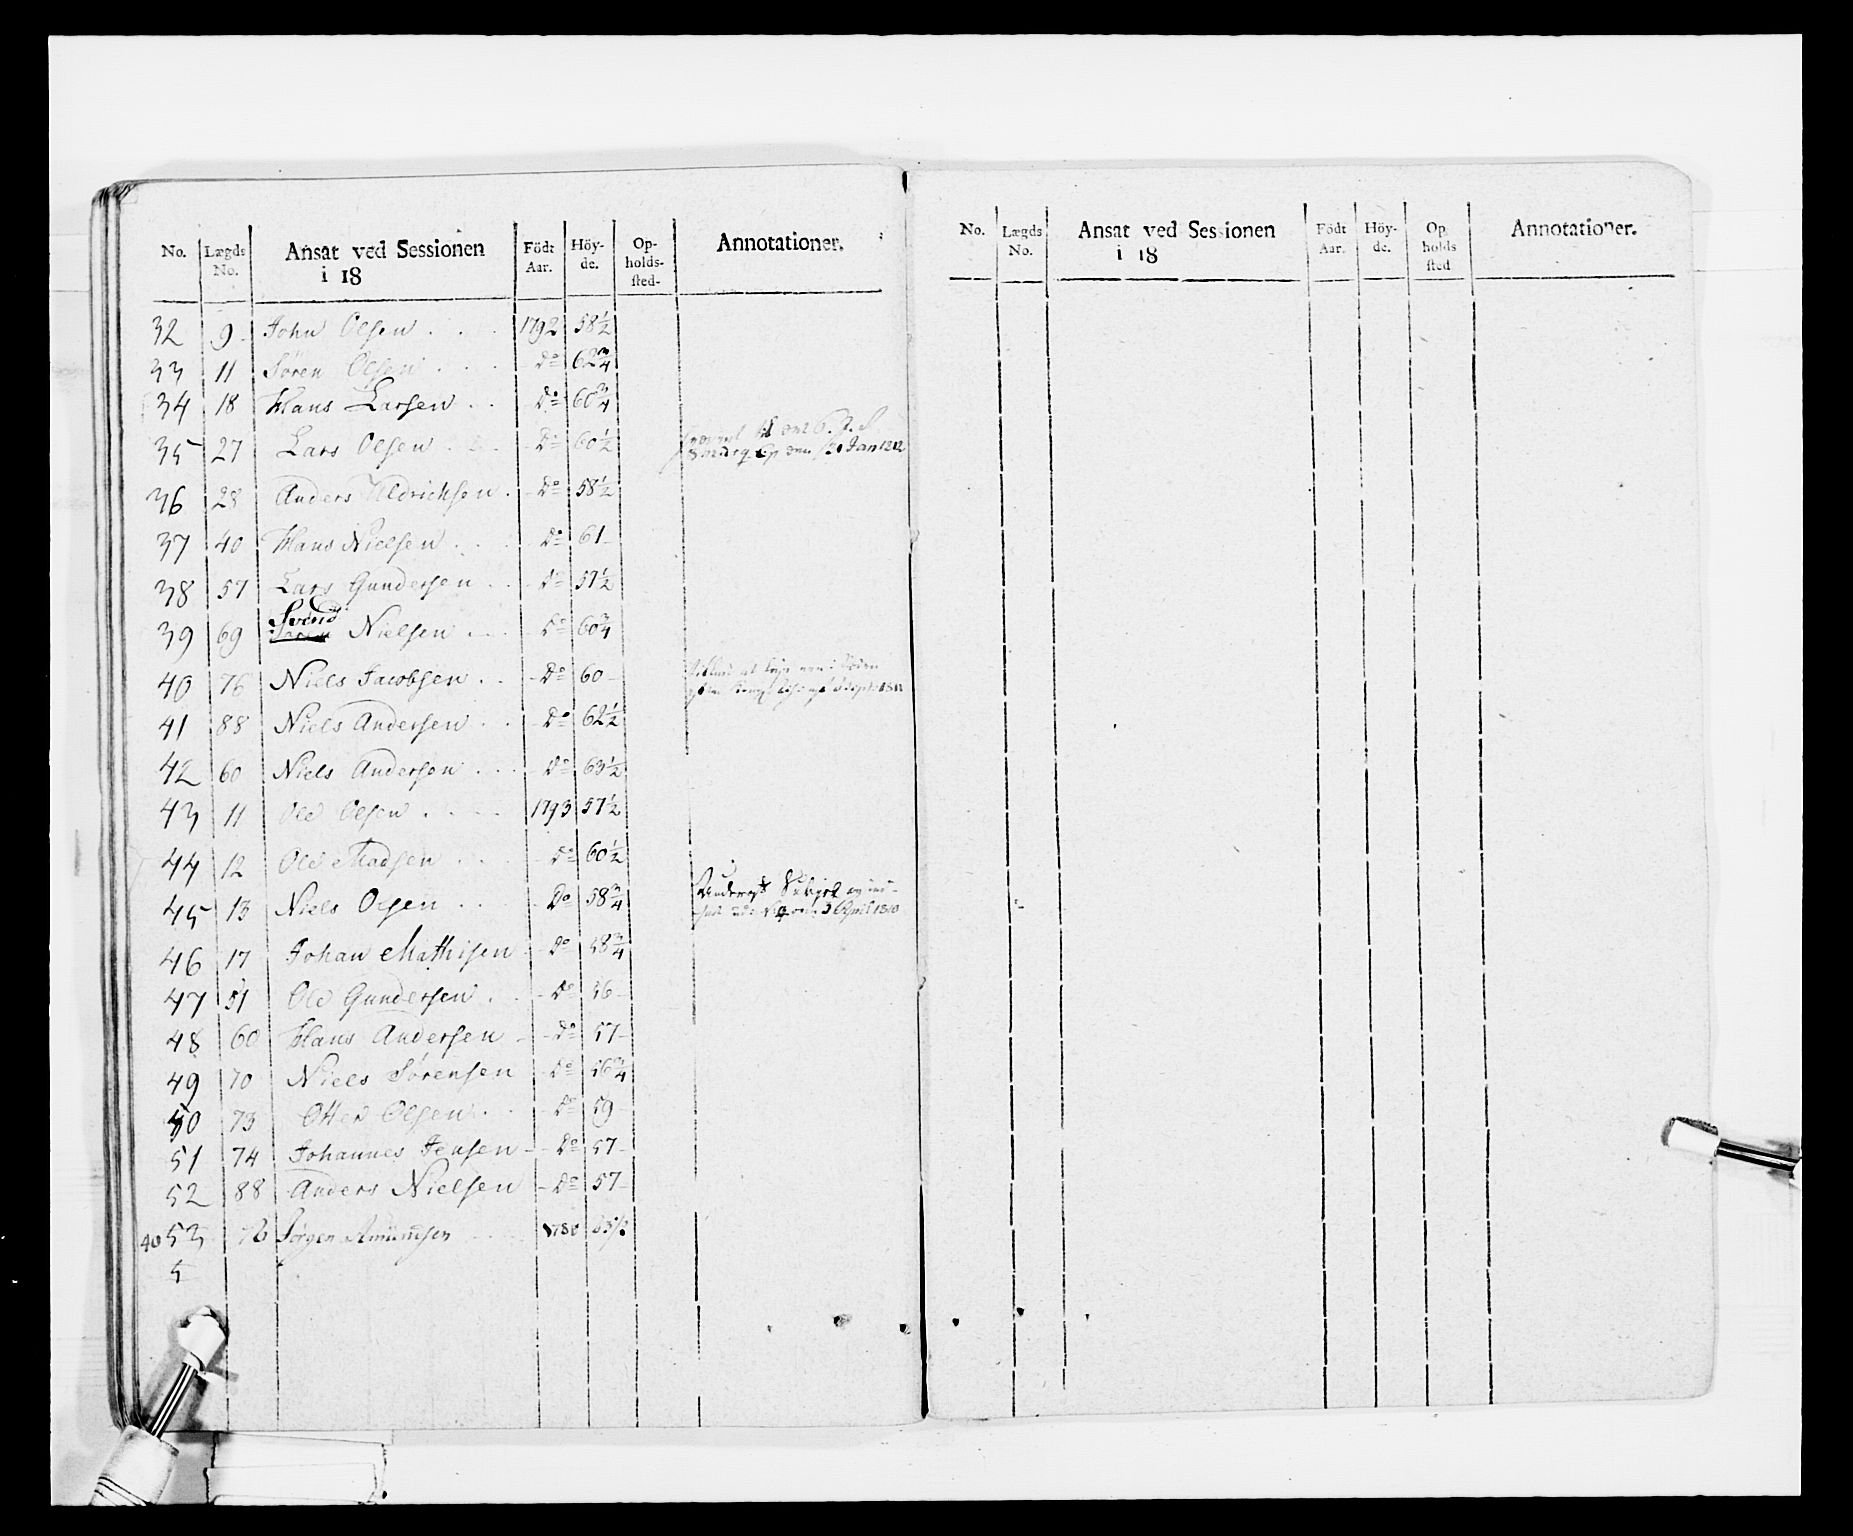 No. Lægds No. Ansat ved Sessionen i 18 Födt Aar. Höy-de. Op-holds-sted- Annotationer.
32 9 John Olsen 1792 58½
33 11 Sören Olsen Do 62¾
34 18 Hans Larsen Do 60¾
35 27 Lars Olsen Do 60½
den Jan 1812
36 28 Anders Uldrichsen Do 58½
37 40 Hans Nielsen Do 61
38 57 Lars Gundersen Do 57½
39 69 Svend Nielsen Do 60¾
40 76 Niels Jacobsen Do 60
1811
41 88 Niels Andersen Do 62½
42 60 Niels Andersen Do 63½
43 11 Ole Olsen 1793 57½
44 12 Ole Madsen Do 60½
45 13 Niels Olsen Do 58¾
3 April 1810
46 17 Johan Mathisen Do 58¾
47 51 Ole Gundersen Do 56
48 60 Hans Andersen Do 57
49 70 Niels Sörensen Do 56¾
50 73 Otter Olsen Do 59
51 74 Johannes Jensen Do 57
52 88 Anders Nielsen Do 57
40 53 76 Jörgen
5
No. Lægds No. Ansat ved Sessionen i 18 Födt Aar. Höy-de. Op holds sted Annotationer.